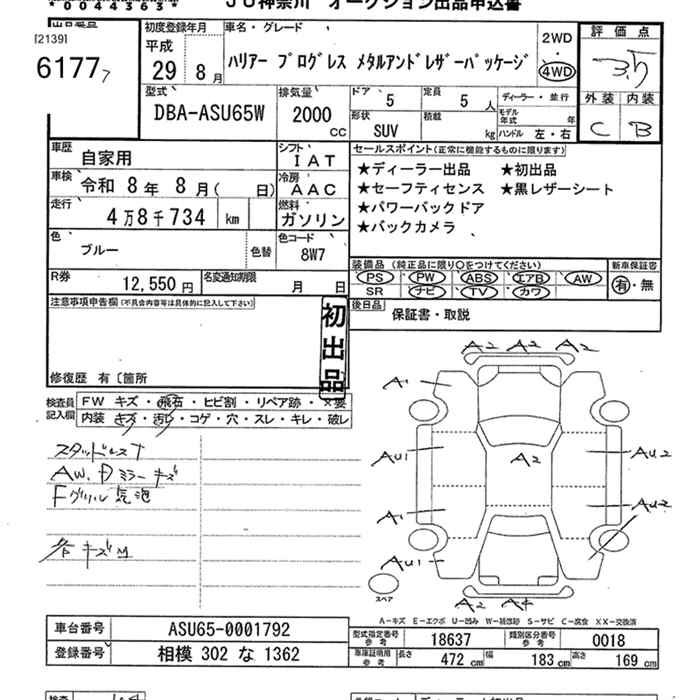 *0044363*
JU神奈川 オークション出品申込書
[2139]
61777
初度登録年月
平成
29年 8月
車名・グレード
ハリアー プログレス メタルアンドレザーパッケージ
2WD
・
4WD
評価点
3.5
外装 内装
C B
型式
DBA-ASU65W
排気量
2000
cc
ドア 5
定員 5人
形状 SUV
積載 kg
ディーラー・並行
モデル年式 年
ハンドル 左・右
車歴 自家用
シフト IAT
車検 令和 8年 8月( 日)
冷房 AAC
走行 4万8千734 km
燃料 ガソリン
色 ブルー
色替
色コード 8W7
R券 12,550円
名変通知期限 月 日
セールスポイント(正常に機能するものに限ります)
★ディーラー出品 ★初出品
★セーフティセンス ★黒レザーシート
★パワーバックドア
★バックカメラ
装備品 (純正品に限り○をつけてください)
PS PW ABS エアB AW
SR ナビ TV カワ
新車保証書
有・無
後日品 保証書・取説
注意事項申告欄(不具合内容等は具体的に記入して下さい)
初出品
修復歴 有〔箇所
検査員記入欄
FW キズ・飛石・ヒビ割・リペア跡・X要
内装 キズ・汚れ・コゲ・穴・スレ・キレ・破レ
スタッドレスT
AW, Dミラーキズ
Fグリル気泡
各キズM
A2 A2 A2
A1
AU1 A2 AU2
A1 AU2
AU1
A2 A4
スペア
A-キズ E-エクボ U-凹み W-補修跡 S-サビ C-腐食 XX-交換済
車台番号 ASU65-0001792
登録番号 相模 302 な 1362
型式指定番号 参考 18637
類別区分番号 参考 0018
車庫証明用 参考 長さ 472 cm 幅 183 cm 高さ 169 cm